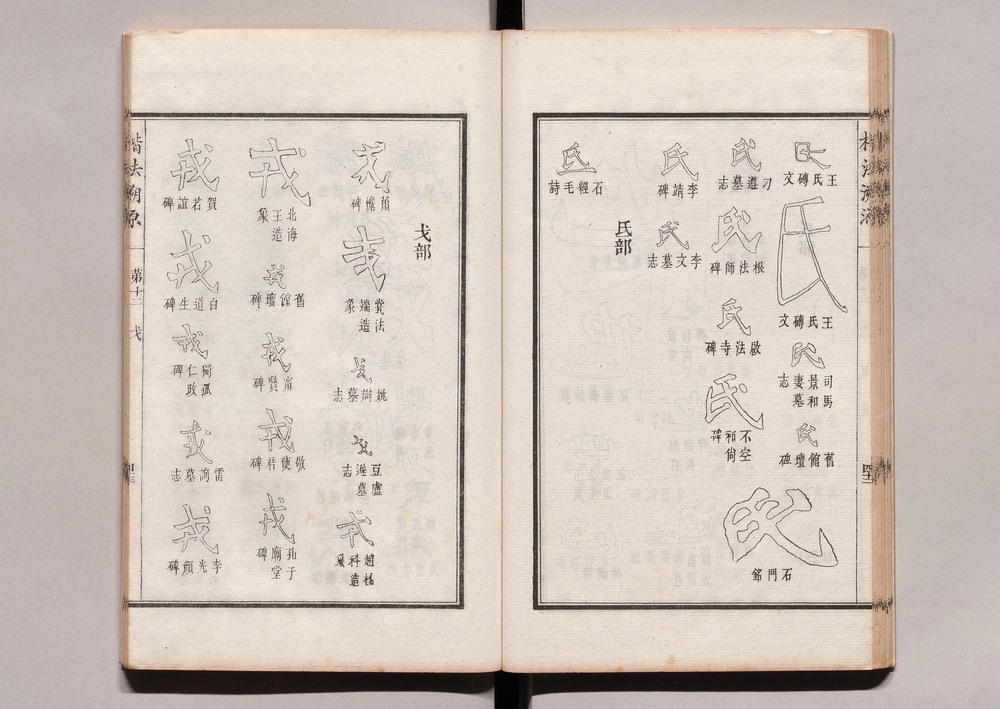 楷法溯源
氏
王氏磚文
氏
王氏磚文
氏
司馬景和妻墓志
氏
舊館壇碑
氏
石門銘
氏
刁遵墓志
氏
根法師碑
氏
啟法寺碑
氏
不空和尚碑
氏
李靖碑
氏
李文墓志
氐部
氐
石經毛詩
戈部
戈
蕭憺碑
戈
法端造象
戈
姚辯墓志
戈
豆盧墓志
戎
趙科造象
戎
北海王造象
戎
舊館壇碑
戎
甯贙碑
戎
敬使君碑
戎
孔子廟堂碑
戎
賀若誼碑
戎
白道生碑
戎
獨孤仁政碑
戎
雷詢墓志
戎
李光顏碑
楷法溯源
第十二
戈